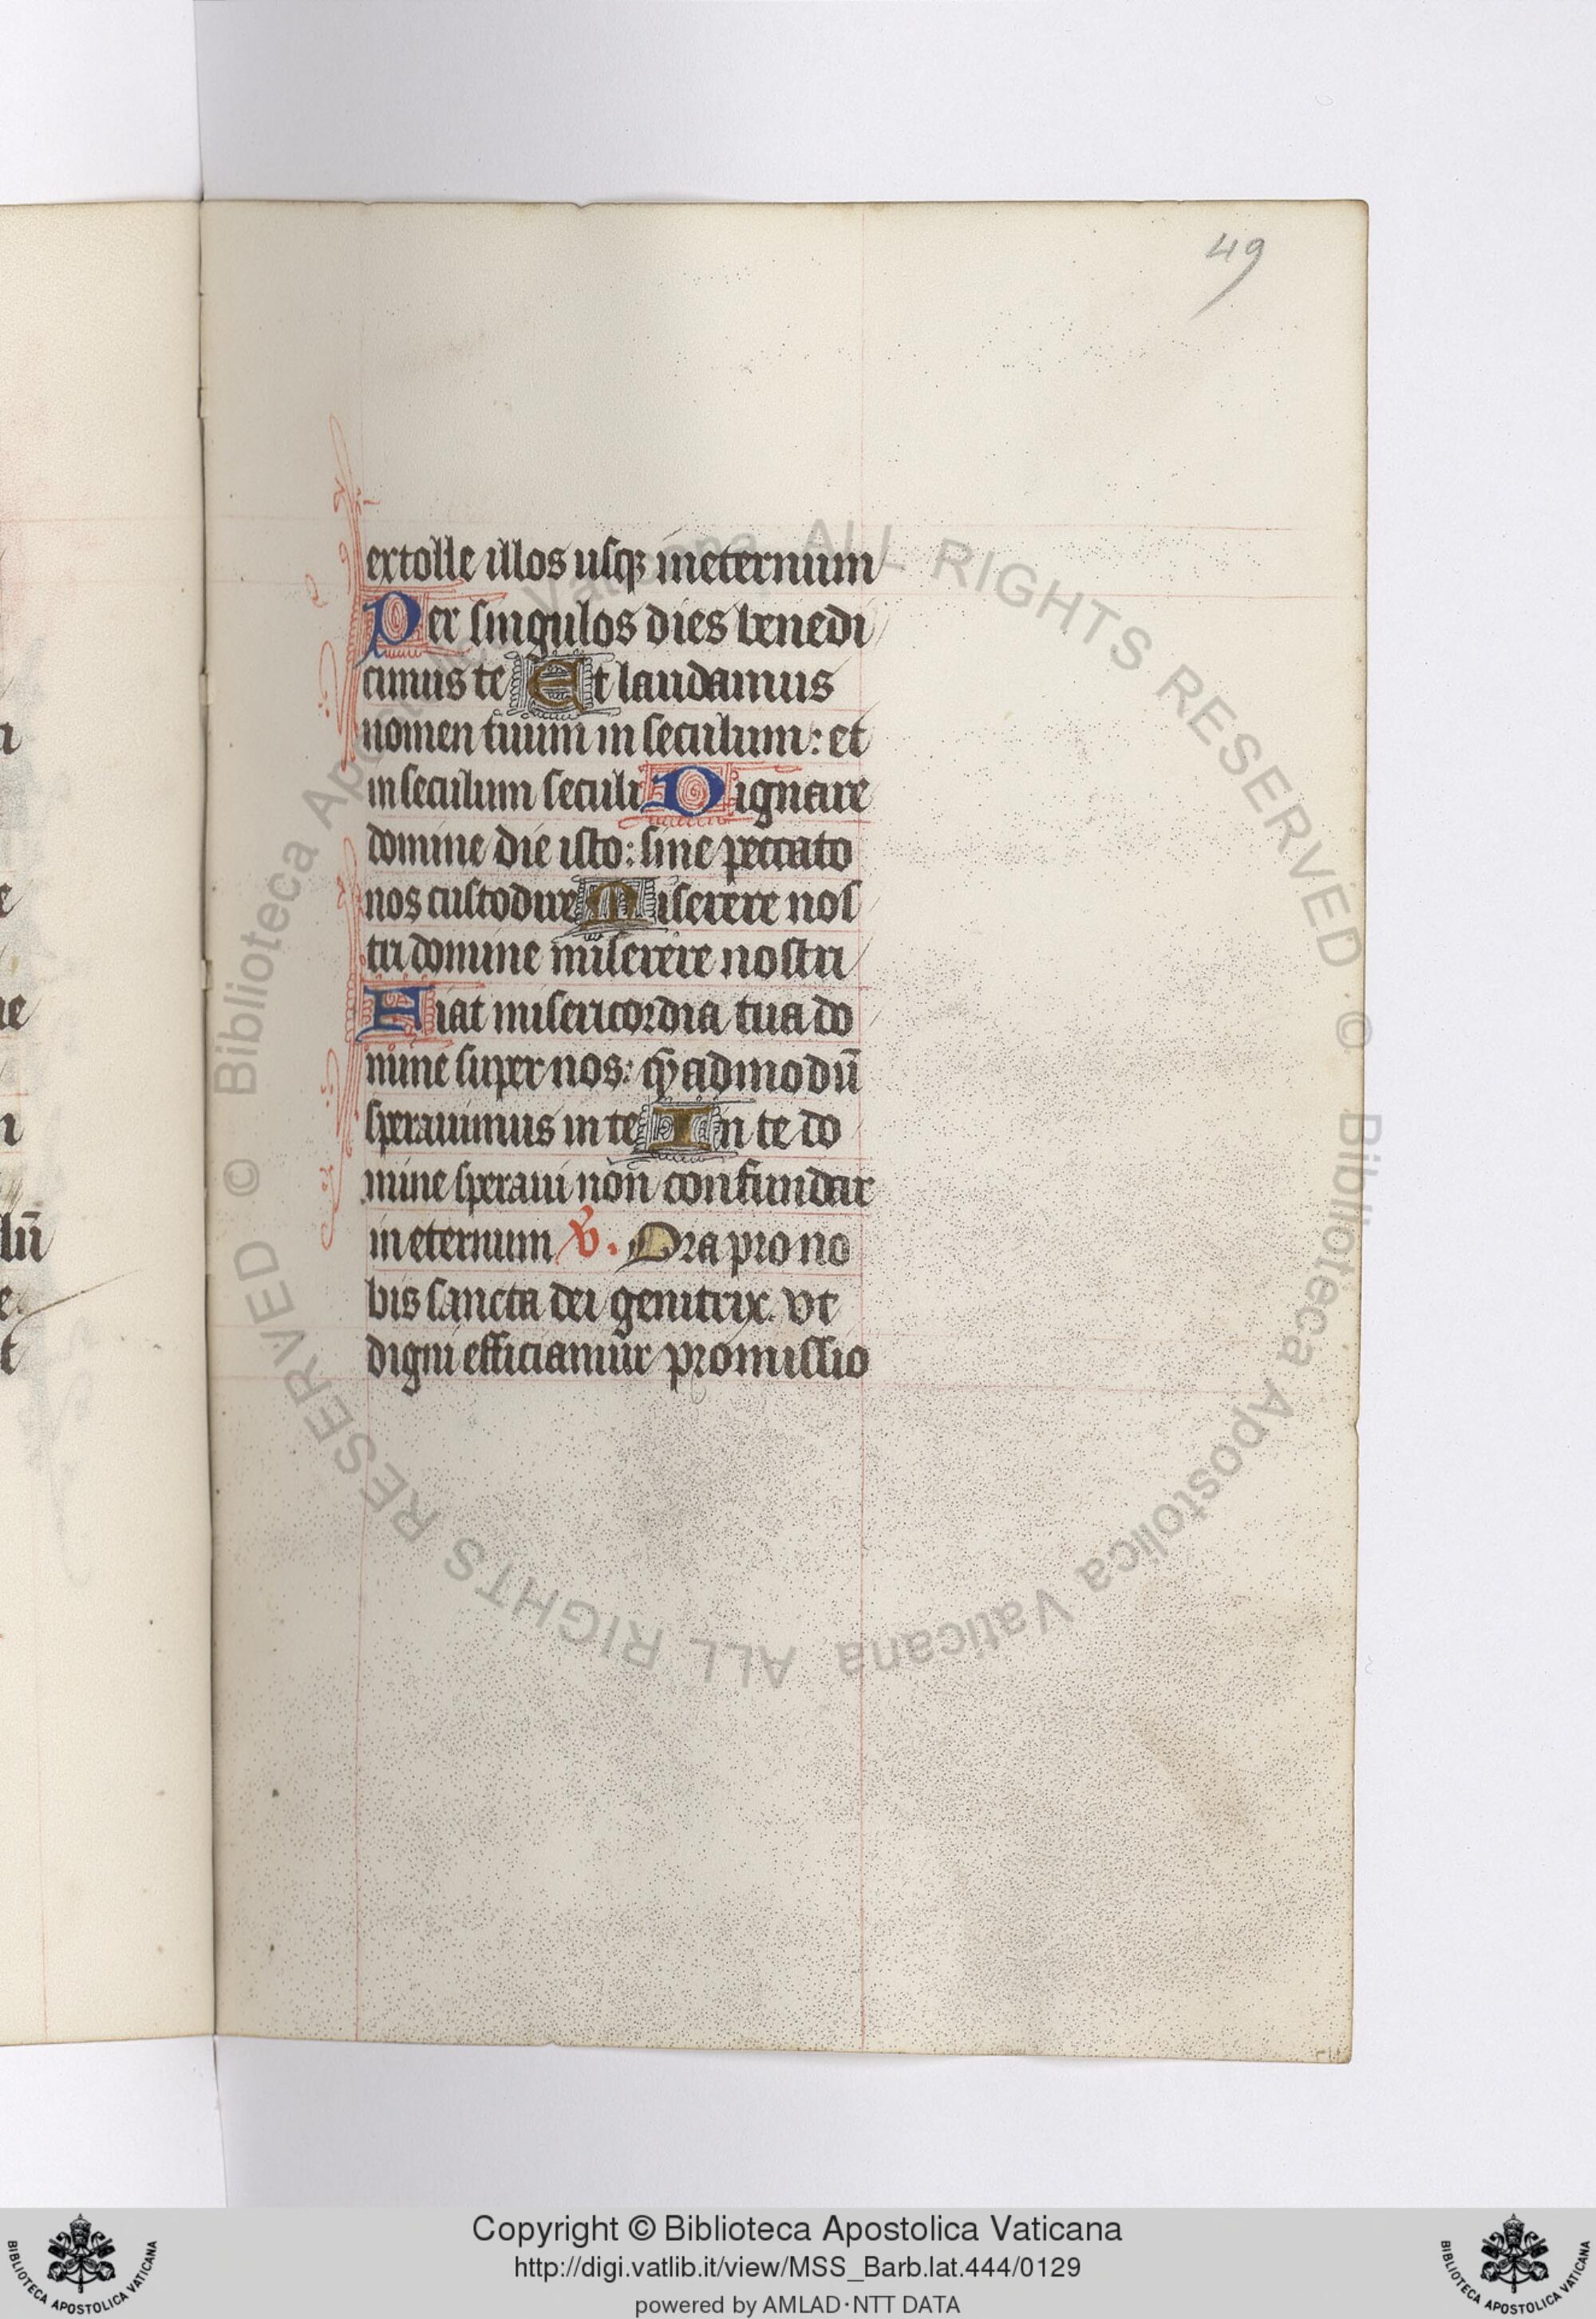 49
extolle illos usqꝫ ineternum
Per singulos dies benedi
cimus te Et laudamus
nomen tuum in seculum: et
in seculum seculi Dignare
domine die isto: sine peccato
nos custodire Miserere nos
tri domine miserere nostri
Fiat misericordia tua do
mine super nos: q̄ʒadmodū
sperauimus in te In te do
mine speraui non confundar
in eternum v̄. Ora pro no
bis sancta dei genitrix. vt
digni efficiamur promissio
lū
Biblioteca Apostolica Vaticana ALL RIGHTS RESERVED · © Biblioteca Apostolica Vaticana ALL RIGHTS RESERVED ©
Copyright © Biblioteca Apostolica Vaticana
http://digi.vatlib.it/view/MSS_Barb.lat.444/0129
powered by AMLAD·NTT DATA
BIBLIOTECA APOSTOLICA VATICANA
BIBLIOTECA APOSTOLICA VATICANA